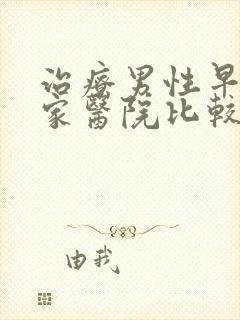 治療男性早
家醫院比較
由我